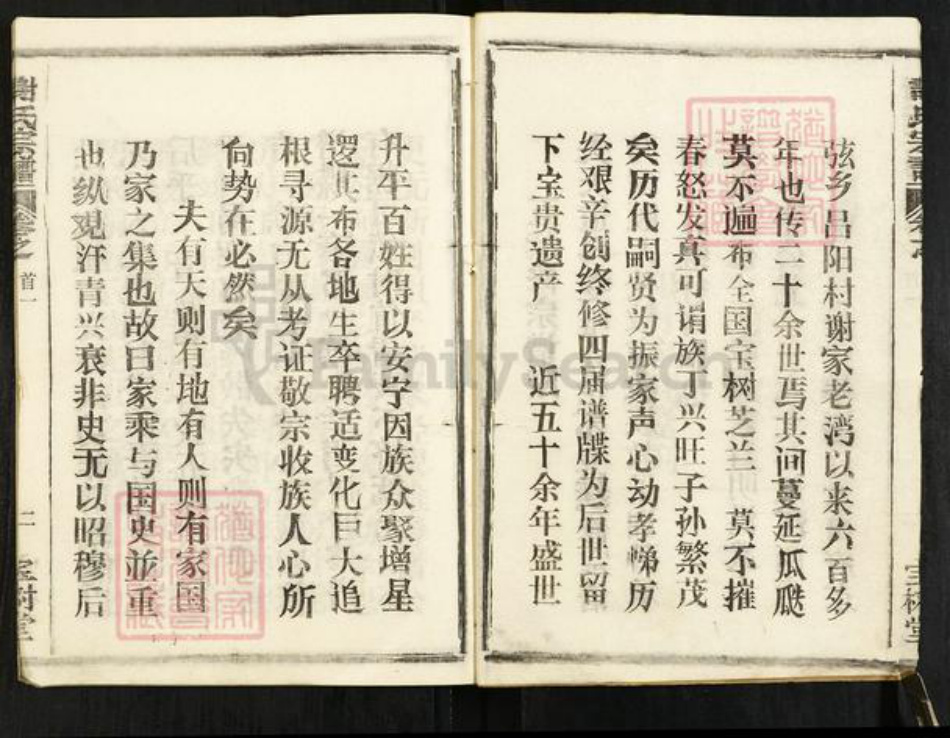 弦乡吕阳村谢家老湾以来六百多
年也传二十余世焉其间蔓延瓜瓞
莫不遍布全国宝树芝兰 莫不摧
春怒发真可谓族丁兴旺子孙繁茂
矣历代嗣贤为振家声心动孝悌历
经艰辛创终修四届谱牒为后世留
下宝贵遗产 近五十余年盛世
升平百姓得以安宁因族众聚增星
逻其布各地生卒聘适变化巨大追
根寻源无从考证敬宗收族人心所
向势在必然矣
夫有天则有地有人则有家国
乃家之集也故曰家乘与国史並重
也纵观汗青兴衰非史无以昭穆后
谢氏宗谱
卷之
首一
二
宝树堂
FamilySearch